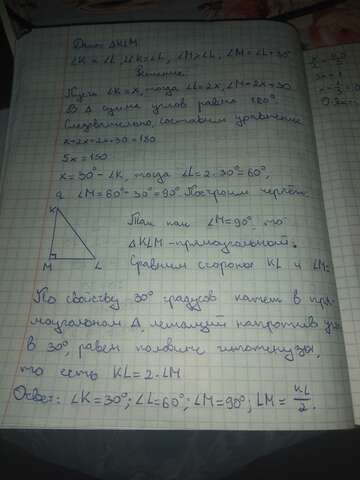 Дано: ΔKLM
∠K < ∠L, ∠M > ∠L, ∠M = ∠L + 30
Решение
Пусть ∠K = x, тогда ∠L = 2x, ∠M = 2x + 30
В Δ сумма углов равна 180°
Следовательно, составим уравнение
x + 2x + 2x + 30 = 180
5x = 150
x = 30° - ∠K, тогда ∠L = 2 · 30° = 60°,
а ∠M = 60° + 30° = 90° Построим чертёж.
K
M
L
Так как ∠M = 90°, то
ΔKLM - прямоугольный.
Сравним стороны KL и LM:
По свойству 30° градусов катет в пря-
моугольном Δ, лежащий напротив угла
в 30°, равен половине гипотенузы,
то есть KL = 2 · LM
Ответ: ∠K = 30°; ∠L = 60°; ∠M = 90°; LM = KL/2.